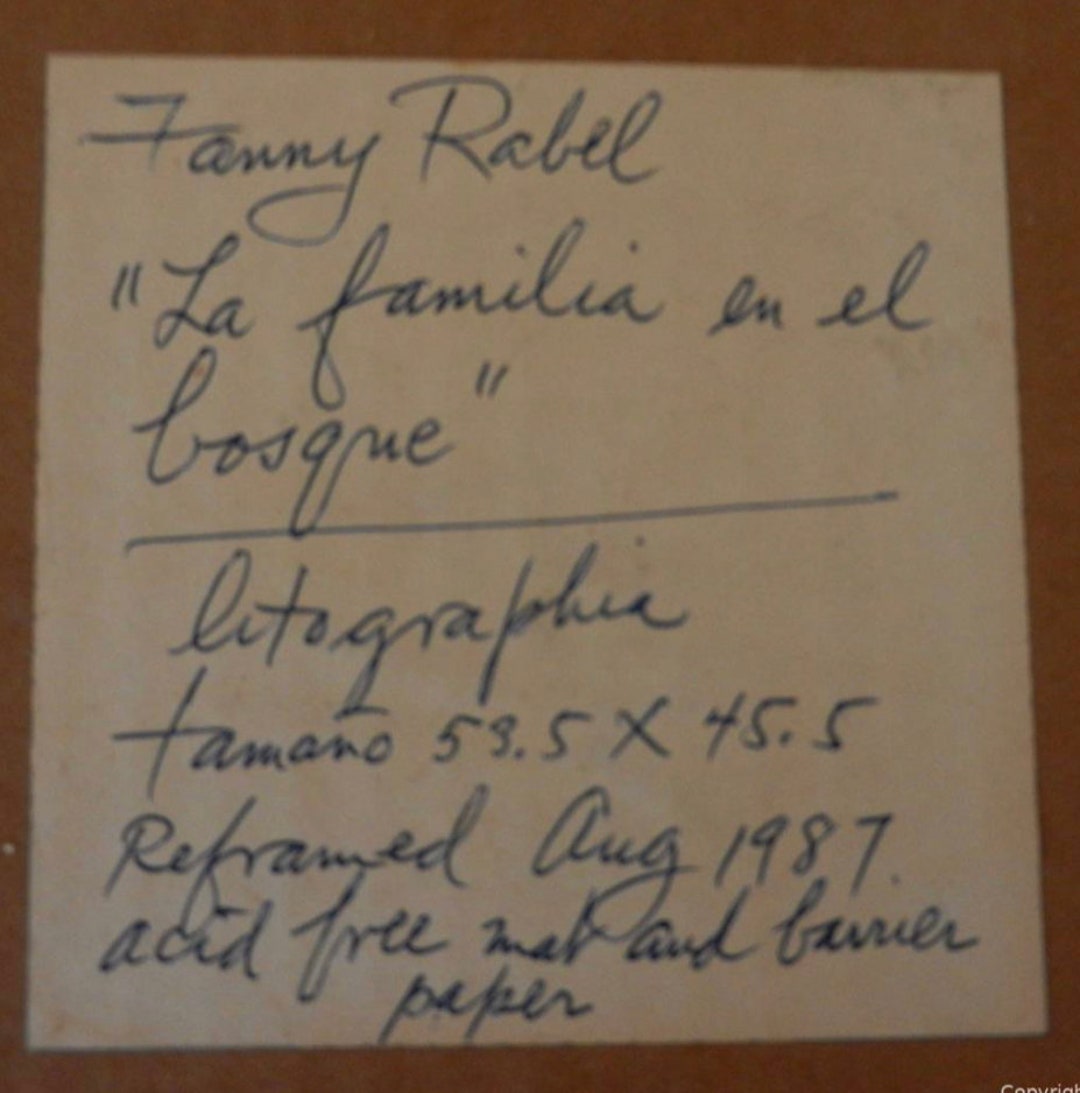 Fanny Rabel
"La familia en el
bosque"
litographia
tamaño 53.5 X 45.5
Reframed Aug 1987.
acid free mat and barrier
paper